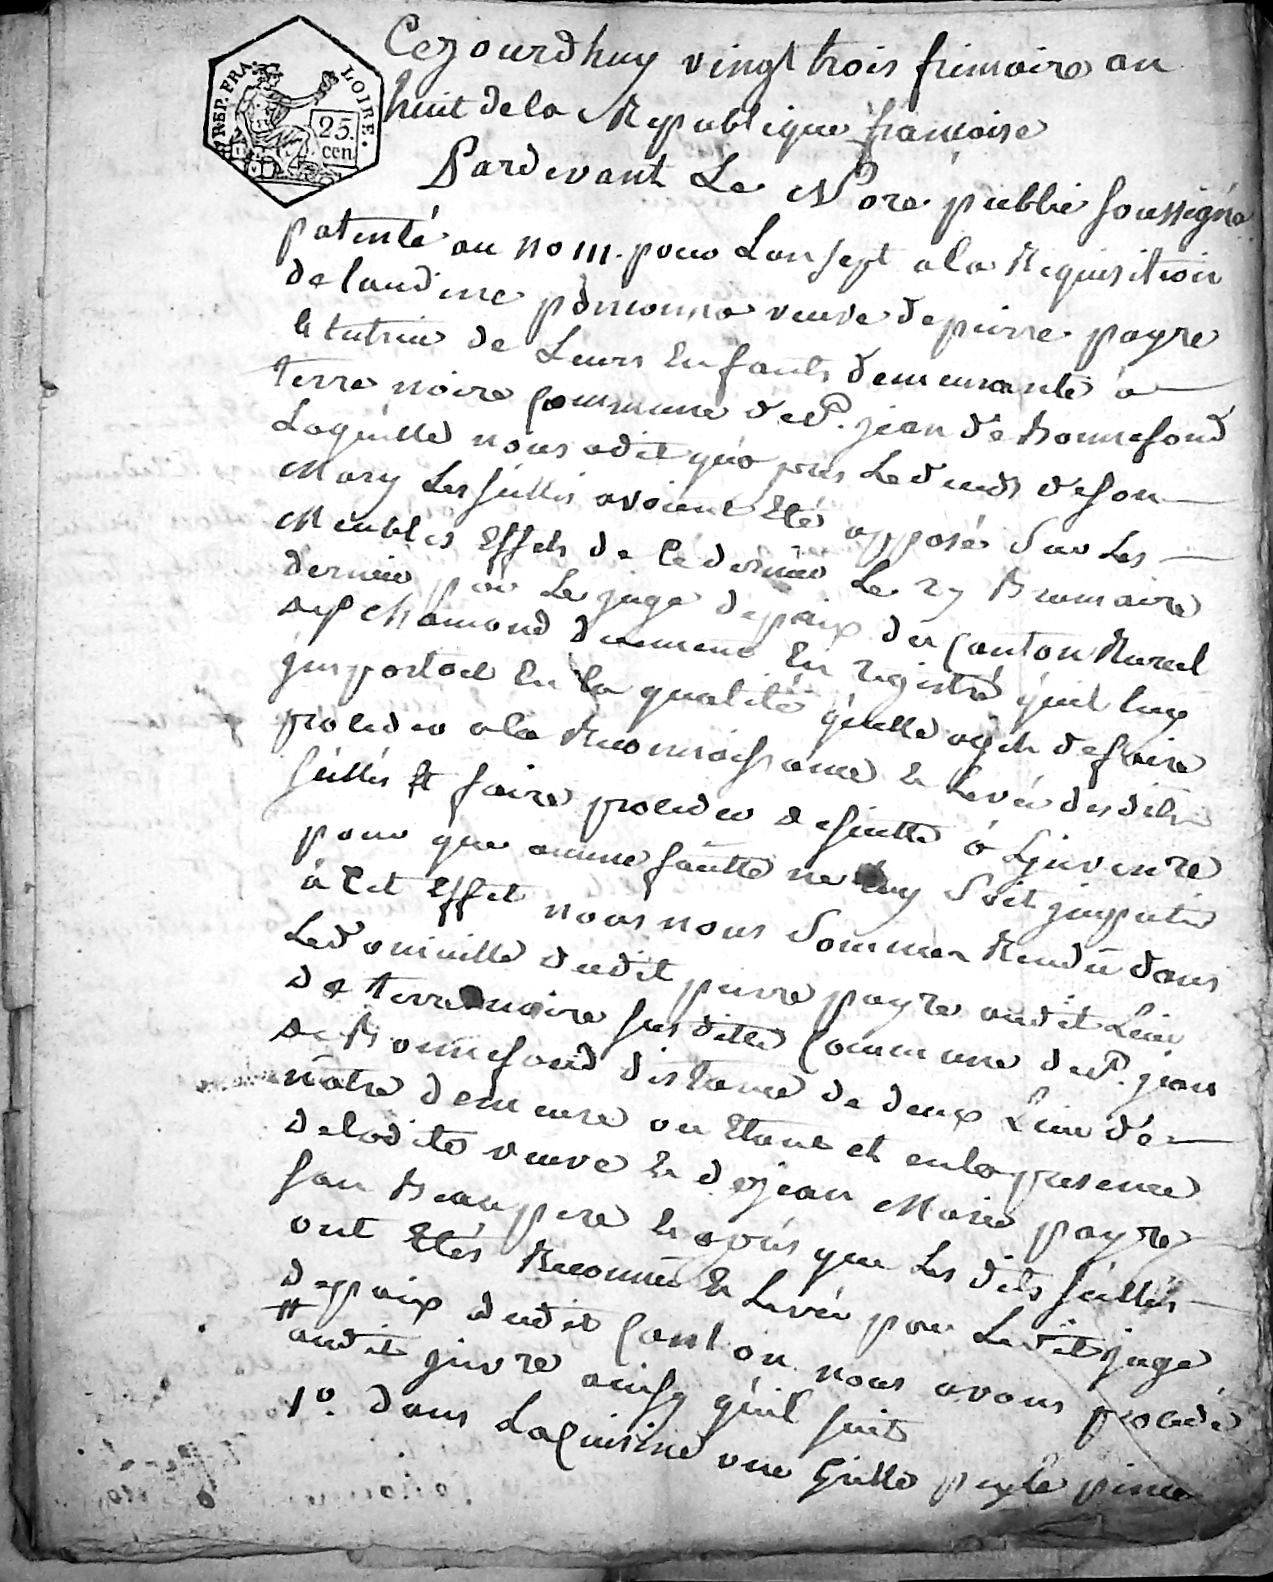 REP. FRA. LOIRE.
25 cen
Cejourdhuy vingt trois frimaire an
huit de la Republique francoise
Pardevant Le Nore public soussigné
patenté au nom. pour Lan sept a la Requisition
de laudine veuve de pierre payre
et tutrice de Leurs Enfants demeurante à
terre noire Commune de St. jean de Bonnefond
Laquelle nous a dit qúapres Le deceds de son
Mary Les scellés avoient Etés apposés Sur Les
Meubles Effets de Ce dernier Le 27 Brumaire
dernier par Le juge depaix du Canton Rural
de St Chamond duement En registré quil luy
jmportoit En la qualité quelle agit de faire
proceder a la Reconnoissance et Levée desdits
scellés Et faire proceder de suitte à Ljnventre
pour que aucune fautte ne luy Soit jmputée
à Cet Effet nous nous Sommes Rendu dans
Le domicille dudit pierre payre audit Lieu
de terrenoire susditte Commune de St. jean
de Bonnefond distance de deux Lieu de
nôtre demeure ou Etant et en la presence
de ladite veuve et de jean Marie payre
son Beaupere et après que Les dits scellés
ont Etés Reconnu et Levée par Ledit juge
depaix dudit Canton nous avons procédé
audit jnvre ainsy qúil suit
1º. dans La Cuisine une Grille pesle pince